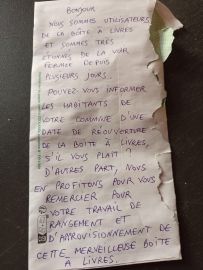 BONJOUR
NOUS SOMMES UTILISATEURS
DE LA BOÎTE À LIVRES
ET SOMMES TRÈS
ÉTONNÉS DE LA VOIR
FERMÉE DEPUIS
PLUSIEURS JOURS.
POUVEZ-VOUS INFORMER
LES HABITANTS DE
VOTRE COMMUNE D'UNE
DATE DE RÉOUVERTURE
DE LA BOÎTE À LIVRES,
S'IL VOUS PLAÎT ?
D'AUTRES PART, NOUS
EN PROFITONS POUR VOUS
REMERCIER POUR
VOTRE TRAVAIL DE
RANGEMENT ET
D'APPROVISIONNEMENT DE
CETTE MERVEILLEUSE BOÎTE
À LIVRES.